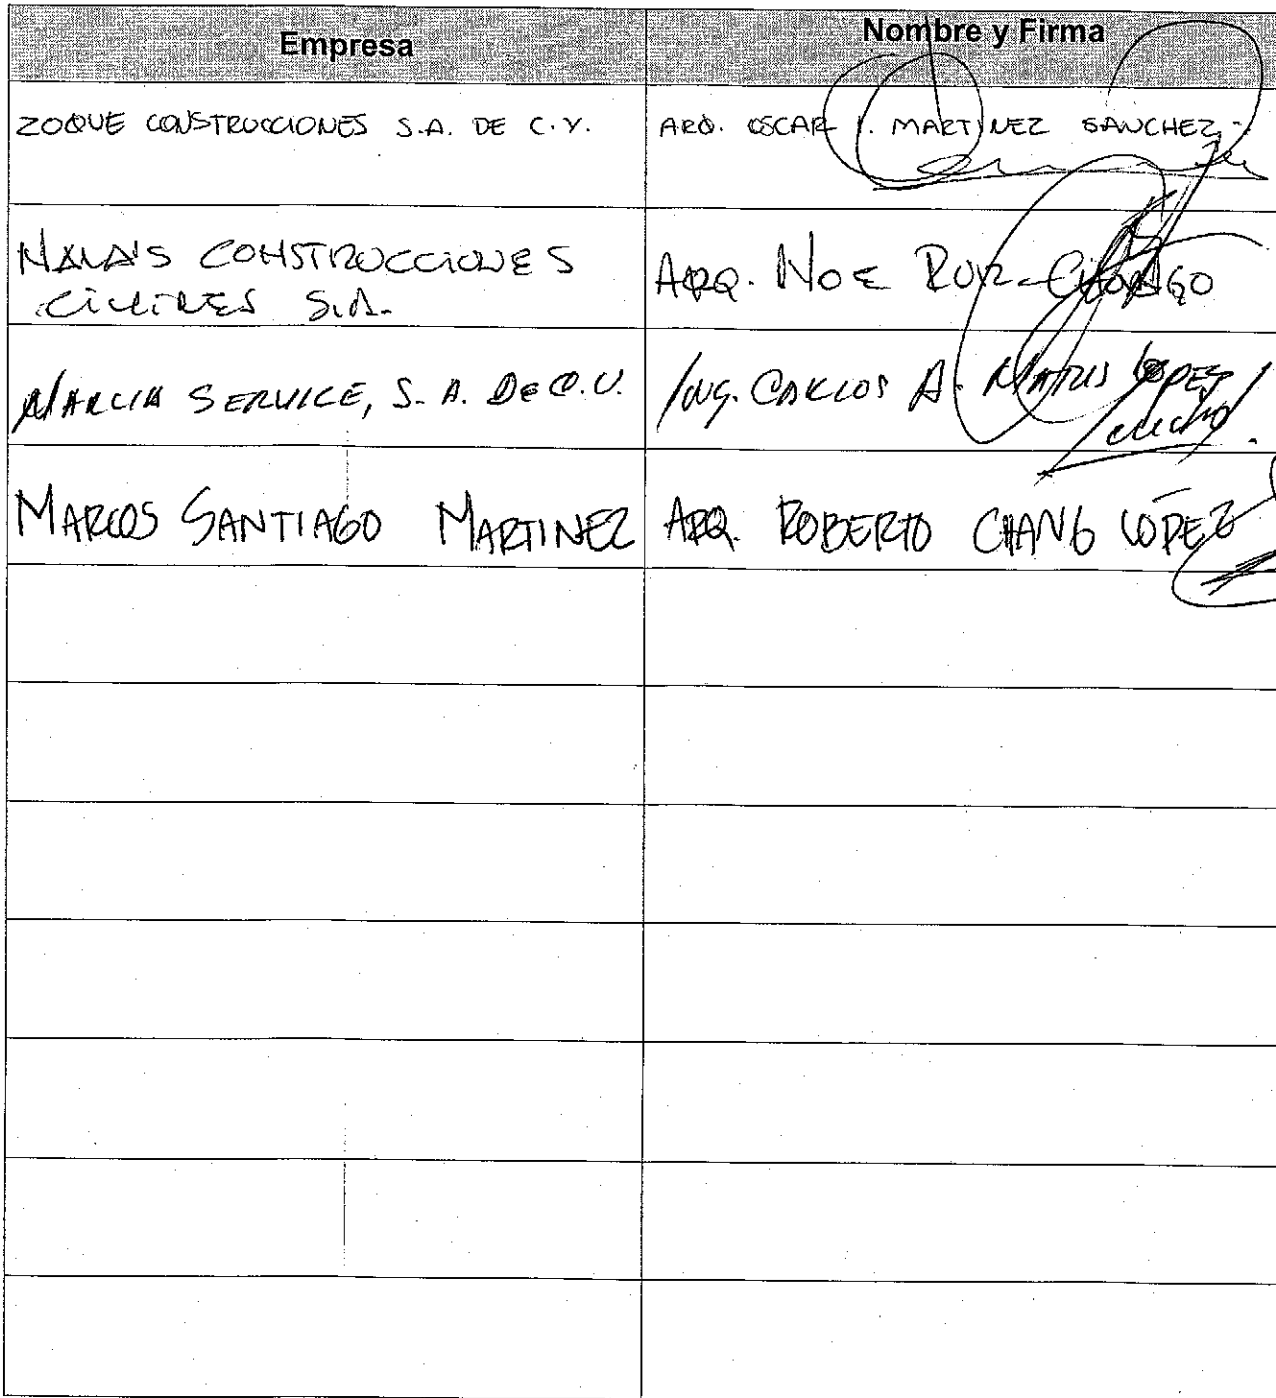 Empresa
Nombre y Firma
ZOQUE CONSTRUCCIONES S.A. DE C.V.
ARQ. OSCAR I. MARTINEZ SANCHEZ
CONSTRUCCIONES
CIVILES S.A.
ARQ. NOE RUIZ
MARCIA SERVICE, S.A. DE C.V.
ING. CARLOS A. MATUS LOPEZ
MARCOS SANTIAGO MARTINEZ
ARQ. ROBERTO CHANG LÓPEZ